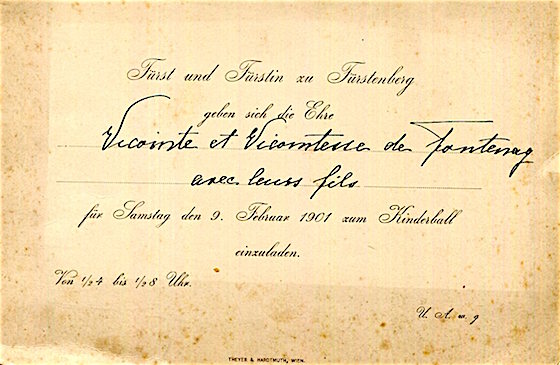 Fürst und Fürstin zu Fürstenberg
geben sich die Ehre
Vicomte et Vicomtesse de Fontenay
avec leurs fils
für Samstag den 9. Februar 1901 zum Kinderball
einzuladen.
Von 1/2 4 bis 1/2 8 Uhr.
U. A. w. g
THEYER & HARDTMUTH, WIEN.